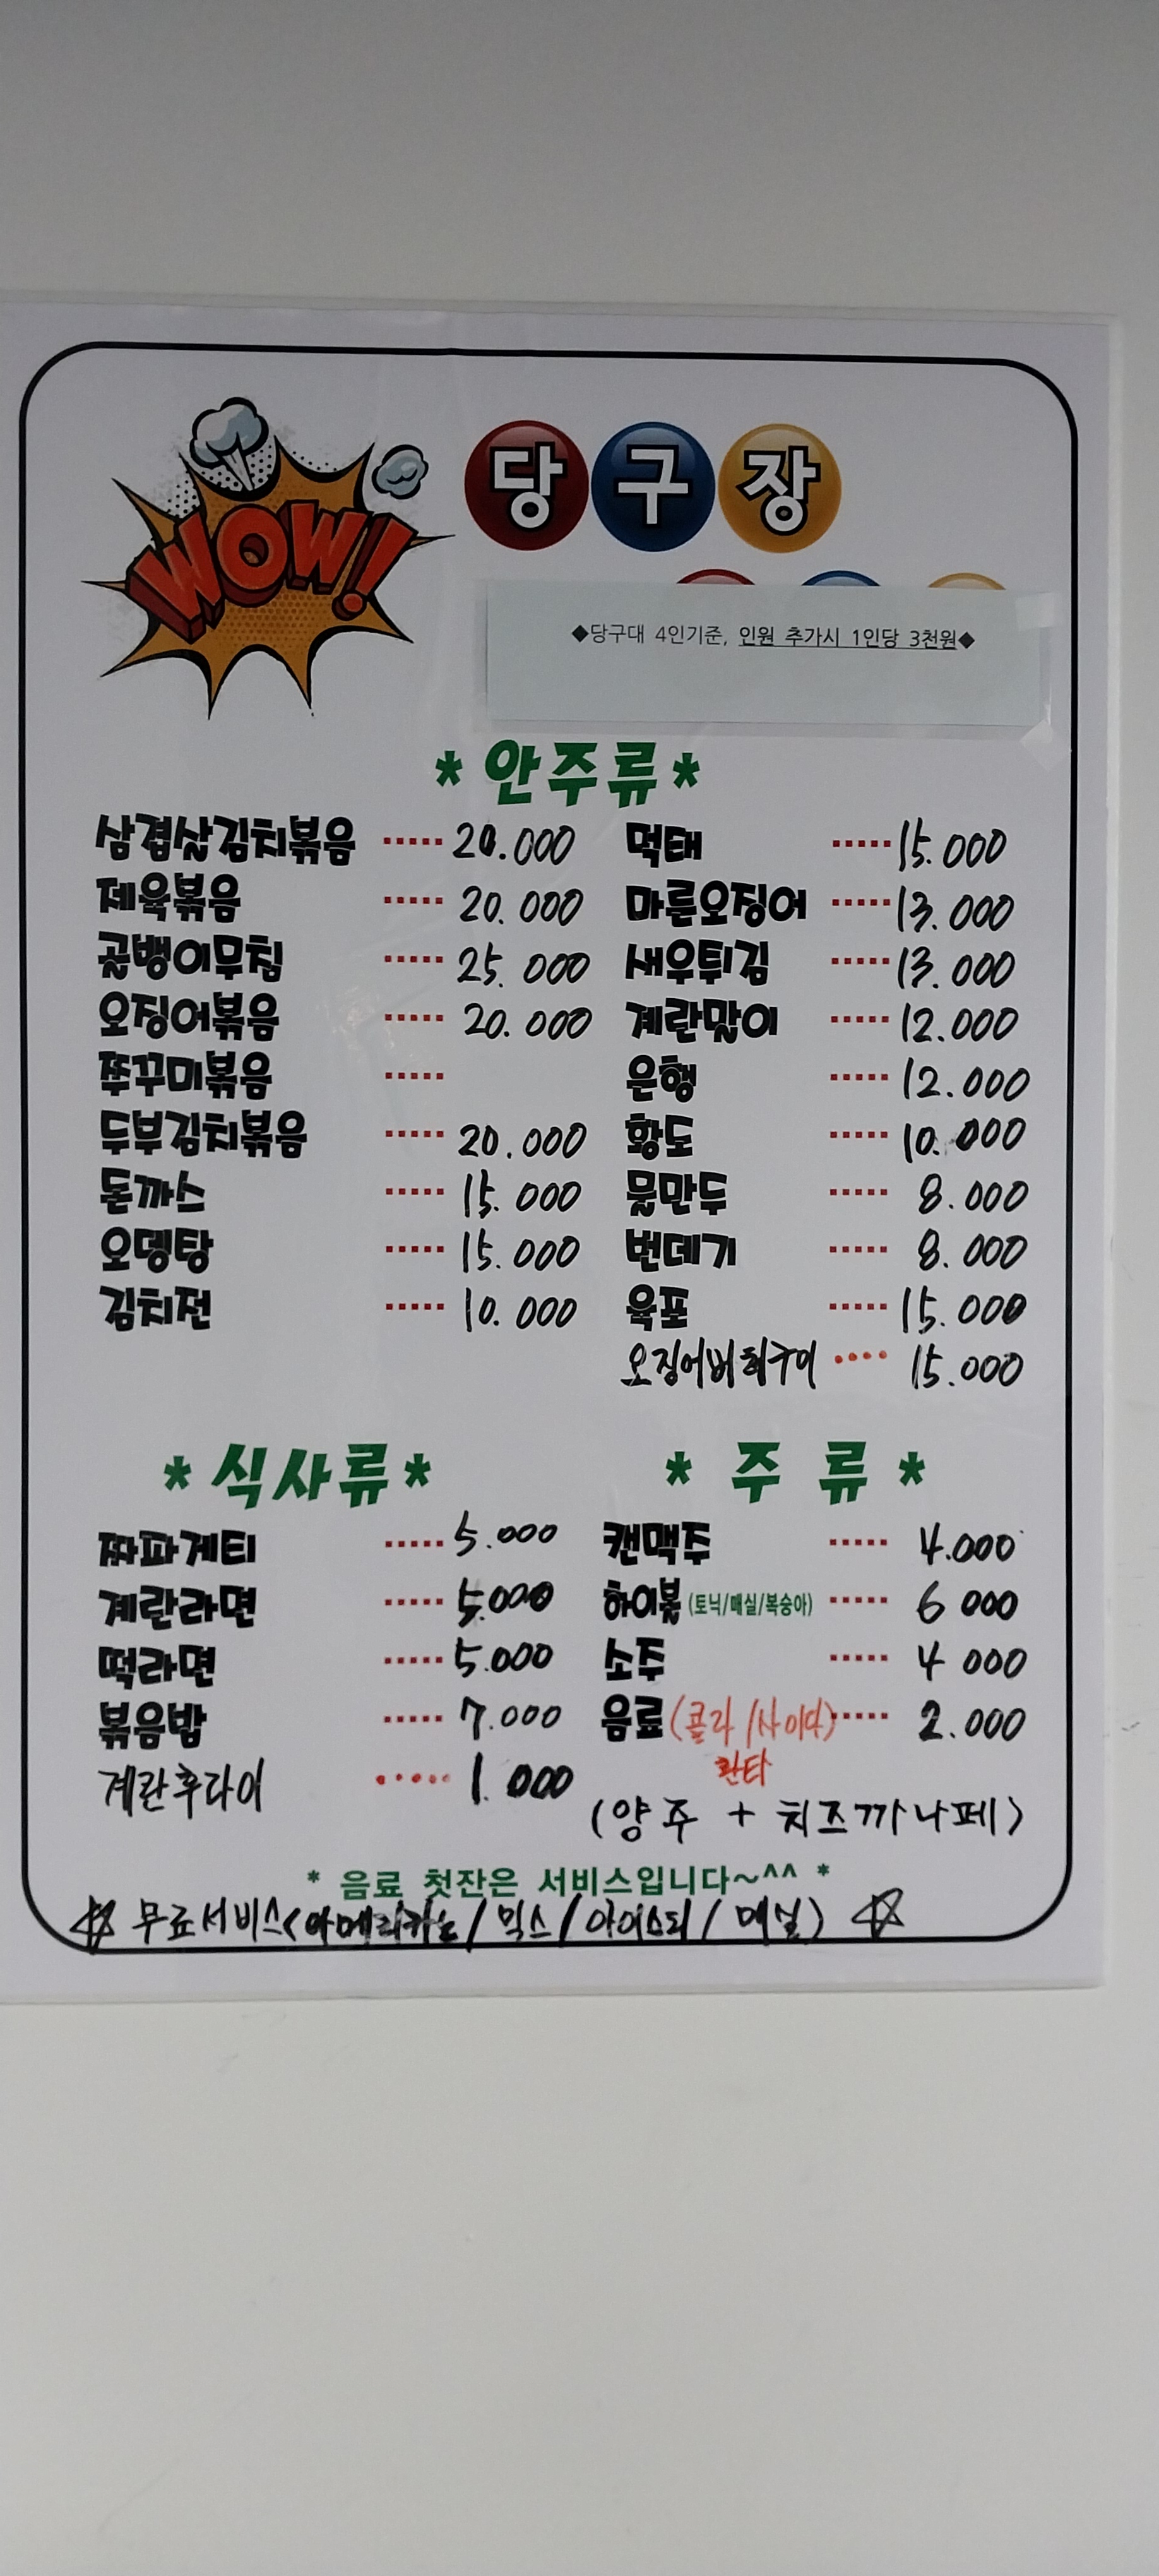 WOW!
당구장
◆당구대 4인기준, 인원 추가시 1인당 3천원◆
* 안주류 *
삼겹살김치볶음 ····· 20.000
제육볶음 ····· 20.000
골뱅이무침 ····· 25.000
오징어볶음 ····· 20.000
쭈꾸미볶음 ·····
두부김치볶음 ····· 20.000
돈까스 ····· 15.000
오뎅탕 ····· 15.000
김치전 ····· 10.000
먹태 ····· 15.000
마른오징어 ····· 13.000
새우튀김 ····· 13.000
계란말이 ····· 12.000
은행 ····· 12.000
황도 ····· 10.000
물만두 ····· 8.000
번데기 ····· 8.000
육포 ····· 15.000
오징어버터구이 ···· 15.000
* 식사류 *
짜파게티 ····· 5.000
계란라면 ····· 5.000
떡라면 ····· 5.000
볶음밥 ····· 7.000
계란후라이 ····· 1.000
* 주 류 *
캔맥주 ····· 4.000
하이볼 (토닉/매실/복숭아) ····· 6 000
소주 ····· 4 000
음료 (콜라/사이다) ····· 2.000
환타
(양주 + 치즈까나페)
* 음료 첫잔은 서비스입니다~^^ *
☆ 무료서비스<아메리카노/믹스/아이스티/매실) ☆